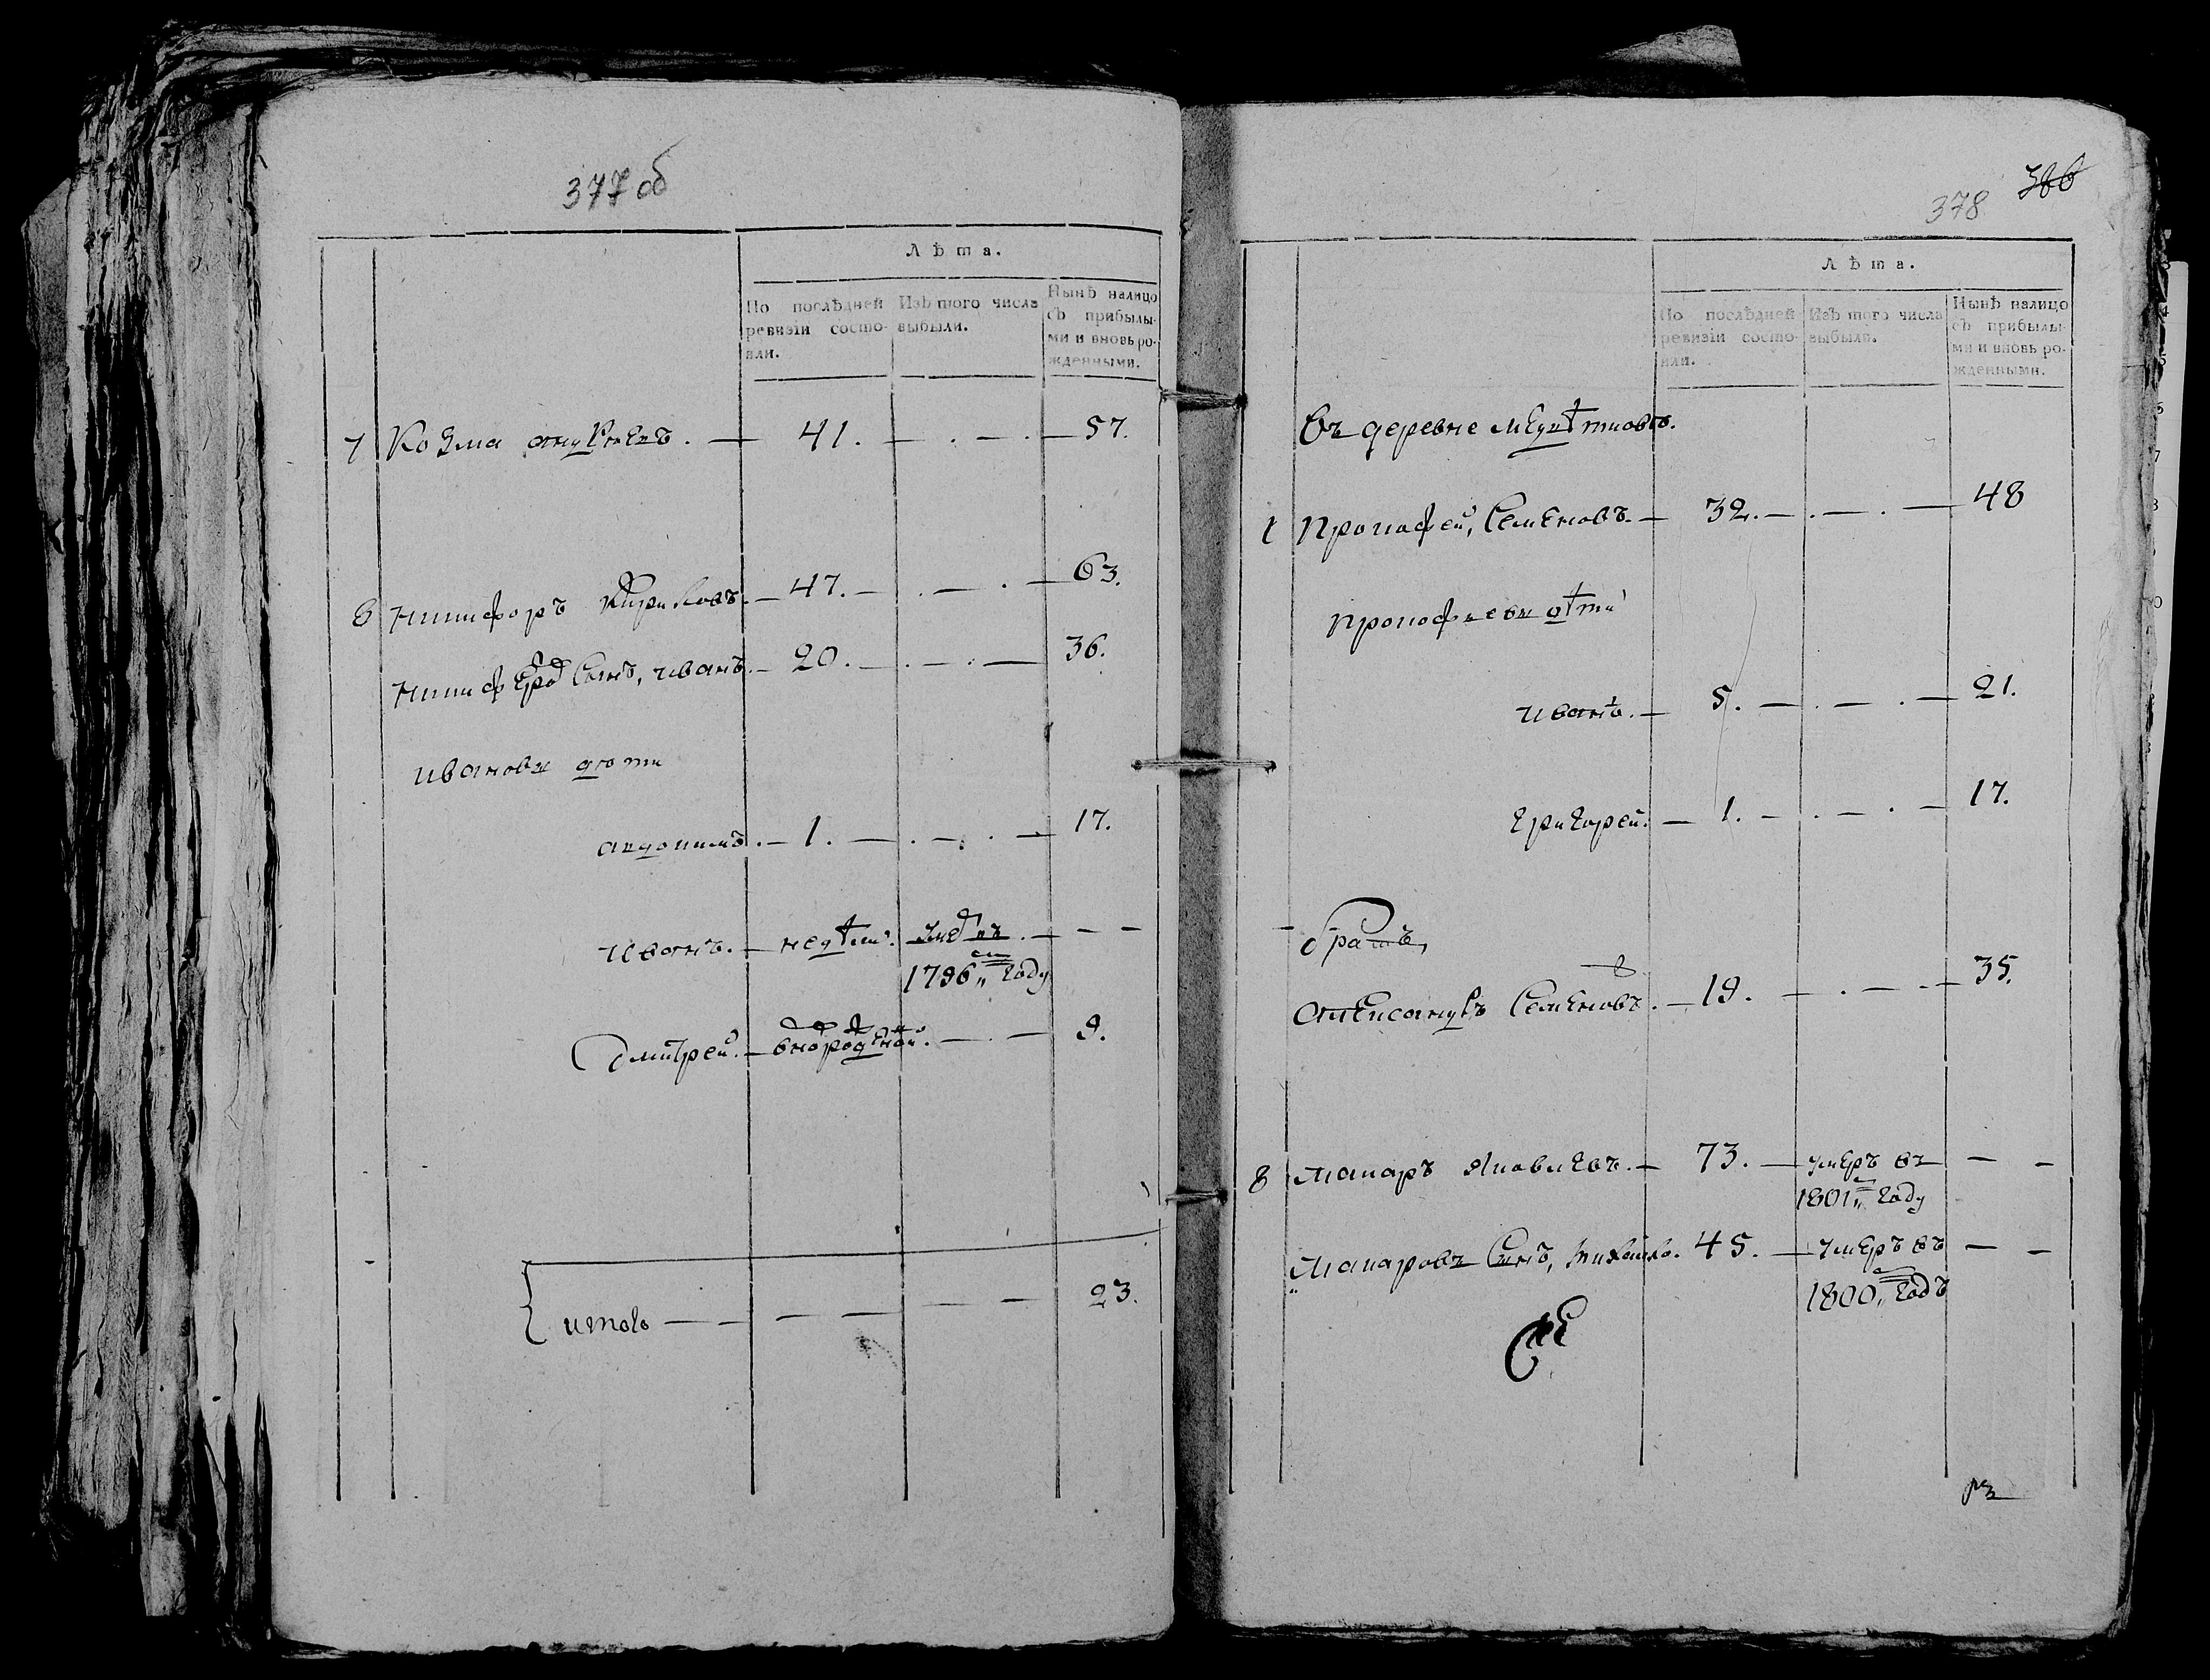 377 об
Лѣта.
По послѣдней
ревизіи состо-
яли.
Изъ того числа
выбыли.
Нынѣ налицо
съ прибылы-
ми и вновь ро-
жденными.
7 Козма — 41. — 57.
8 Никифоръ Кириловъ. — 47. — 63.
Никифоровъ Сынъ, иванъ. — 20. — 36.
ивановы дѣти
— 1. — 17.
иванъ. — недѣли.
1796 году
Дмитрей. — 9.
итого — 23.
378 366
Лѣта.
По послѣдней
ревизіи состо-
яли.
Изъ того числа
выбыли.
Нынѣ налицо
съ прибылы-
ми и вновь ро-
жденными.
Въ деревне
1 Прокофей, Семеновъ. — 32. — 48
Прокофьевы дѣти
иванъ. — 5. — 21.
Григорей. — 1. — 17.
братъ,
Александръ Семеновъ. — 19. — 35.
8 Макаръ Яковлевъ. — 73. — умеръ въ — —
1801 году
Макаровъ Сынъ, Михайло. 45. — умеръ въ — —
1800 годъ